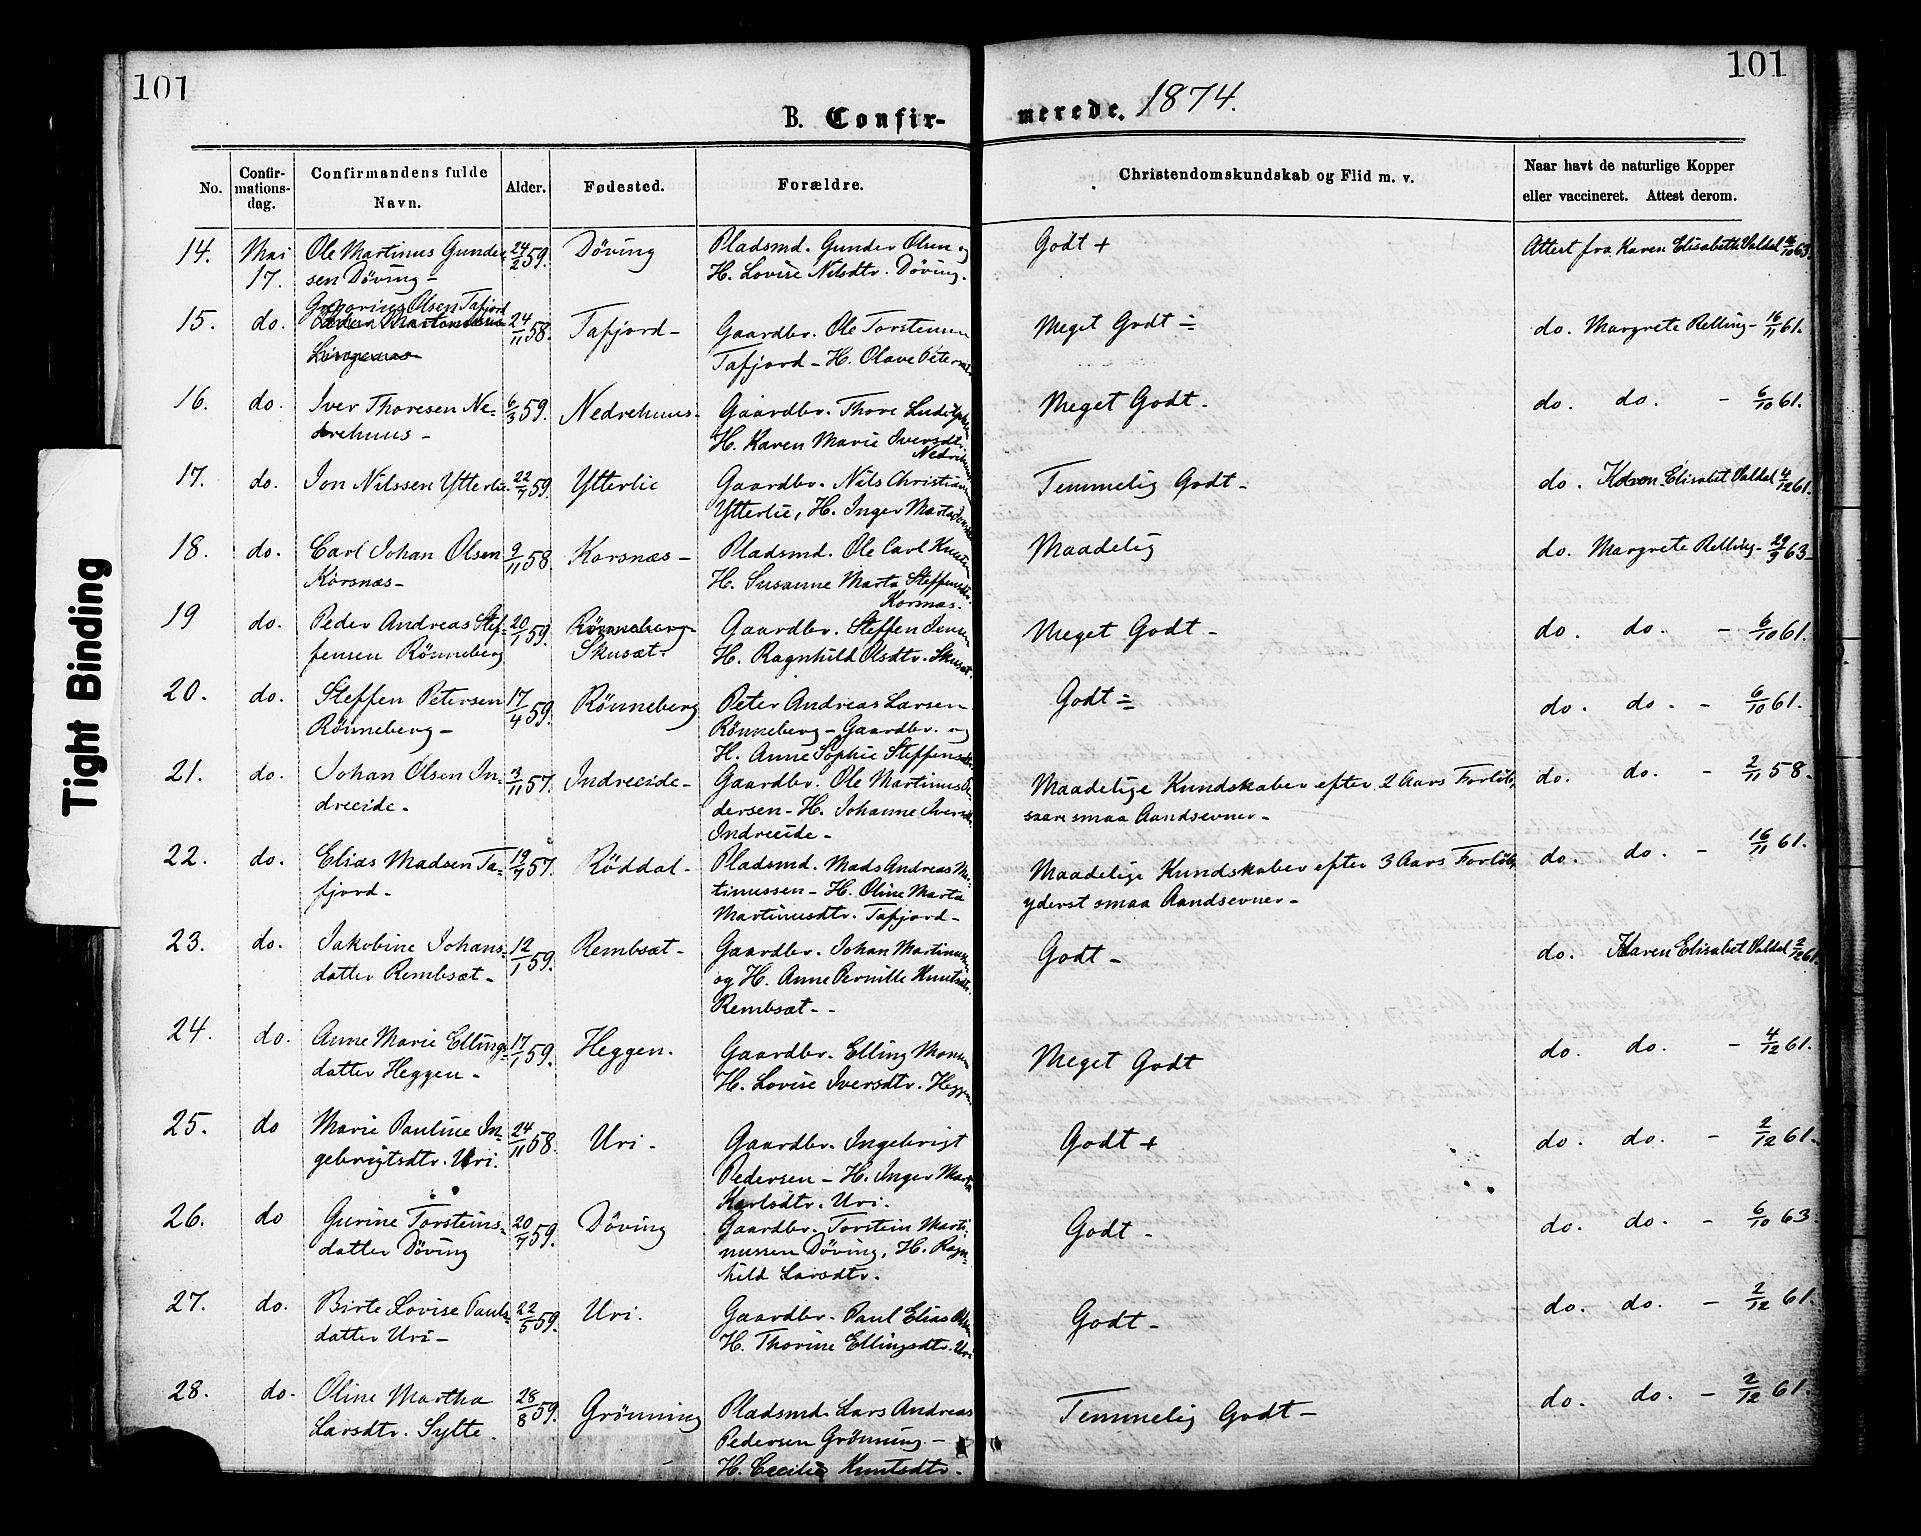 101
101
B. Confir-
merede. 1874.
No.
Confir-
mations-
dag.
Confirmandens fulde
Navn.
Alder.
Fødested.
Forældre.
Christendomskundskab og Flid m. v.
Naar havt de naturlige Kopper
eller vaccineret. Attest derom.
14. Mai 17. Ole Martinus Gunder- 24/2 59. Döving Pladsmd. Gunder Olsen og Godt + Attest fra Karen Elisabeth Valdal 63.
sen Döving - H. Lovise Nilsdtr. Döving.
Olsen Tafjord
15. do. 24/11 58. Tafjord - Gaardbr. Ole Torstensen Meget Godt ÷ do. Margrete Relling - 16/11 61.
Tafjord - H. Olave
16. do. Iver Thoresen Ne- 6/3 59. Nedrehuus - Gaardbr. Thore Meget Godt - do. do. - 6/10 61.
drehuus - H. Karen Marie Iversdtr.
17. do. Jon Nilssen Ytterlie. 22/7 59. Ytterlie Gaardbr. Nils Christian Temmelig Godt - do. Karen Elisabet Valdal 4/12 61.
Ytterlie, H. Inger Marta
18. do. Carl Johan Olsen 9/11 58 Korsnæs - Pladsmd. Ole Carl Knutsen Maadelig do. Margrete Relling - 29/9 63 -
Korsnæs - H. Susanne Marta Steffensdtr.
Korsnæs.
19 do. Peder Andreas Stef- 20/1 59. Rönneberg- Gaardbr. Steffen Jensen Meget Godt - do. do. - 6/10 61.
fensen Rönneberg Skusæt. H. Ragnhild Olsdtr. Skusæt.
20. do. Steffen Petersen 17/4 59. Rönneberg Peter Andreas Larsen Godt ÷ do. do. - 6/10 61.
Rönneberg - Rönneberg - Gaardbr. og
H. Anne Sophie Steffensdtr.
21. do. Johan Olsen In- 3/11 57. Indreeide - Gaardbr. Ole Martinus Pe- Maadelige Kundskaber efter 2 Aars Forlöb, do. do. - 2/11 58 -
dreeide - dersen - H. Johanne Iversdtr. svare smaa Aandsevner -
Indreeide -
22. do. Elias Madsen Ta- 19/7 57. Röddal - Pladsmd. Mads Andreas Mar- Maadelige Kundskaber efter 3 Aars Forlöb, do. do. - 16/11 61.
fjord - tinussen - H. Oline Marta yderst smaa Aandsevner -
Martinusdtr. Tafjord -
23. do. Jakobine Johans- 12/1 59. Rembsæt - Gaardbr. Johan Martinussen Godt - do. Karen Elisabet Valdal 2/12 61.
datter Rembsæt - og H. Anne Pernille Knutsdtr.
Rembsæt - -
24. do. Anne Marie Ellings- 17/1 59. Heggen. Gaardbr. Elling Monsen Meget Godt do. do. - 4/12 61.
datter Heggen - H. Lovise Iversdtr. Heggen
25. do Marie Pauline In- 24/11 58. Uri. Gaardbr. Ingebrigt Godt + do. do. - 2/12 61.
gebrigtsdtr. Uri. Pedersen - H. Inger Marta
Karlsdtr. Uri.
26. do Gurine Torsteins- 20/7 59. Döving Gaardbr. Torstein Marti- Godt - do. do. - 6/10 63.
datter Döving nussen Döving, H. Ragn-
hild Larsdtr.
27. do. Birte Lovise Pauls- 22/5 59. Uri. Gaardbr. Paul Elias Olsen Godt - do. do. - 2/12 61.
datter Uri - H. Thorine Ellingsdtr. Uri
28. do. Oline Martha 28/8 59. Grönning Pladsmd. Lars Andreas Temmelig Godt - do. do. - 2/12 61.
Larsdtr. Sylte. Pedersen Grönning -
H. Cecilie Knutsdtr.
Tight Binding